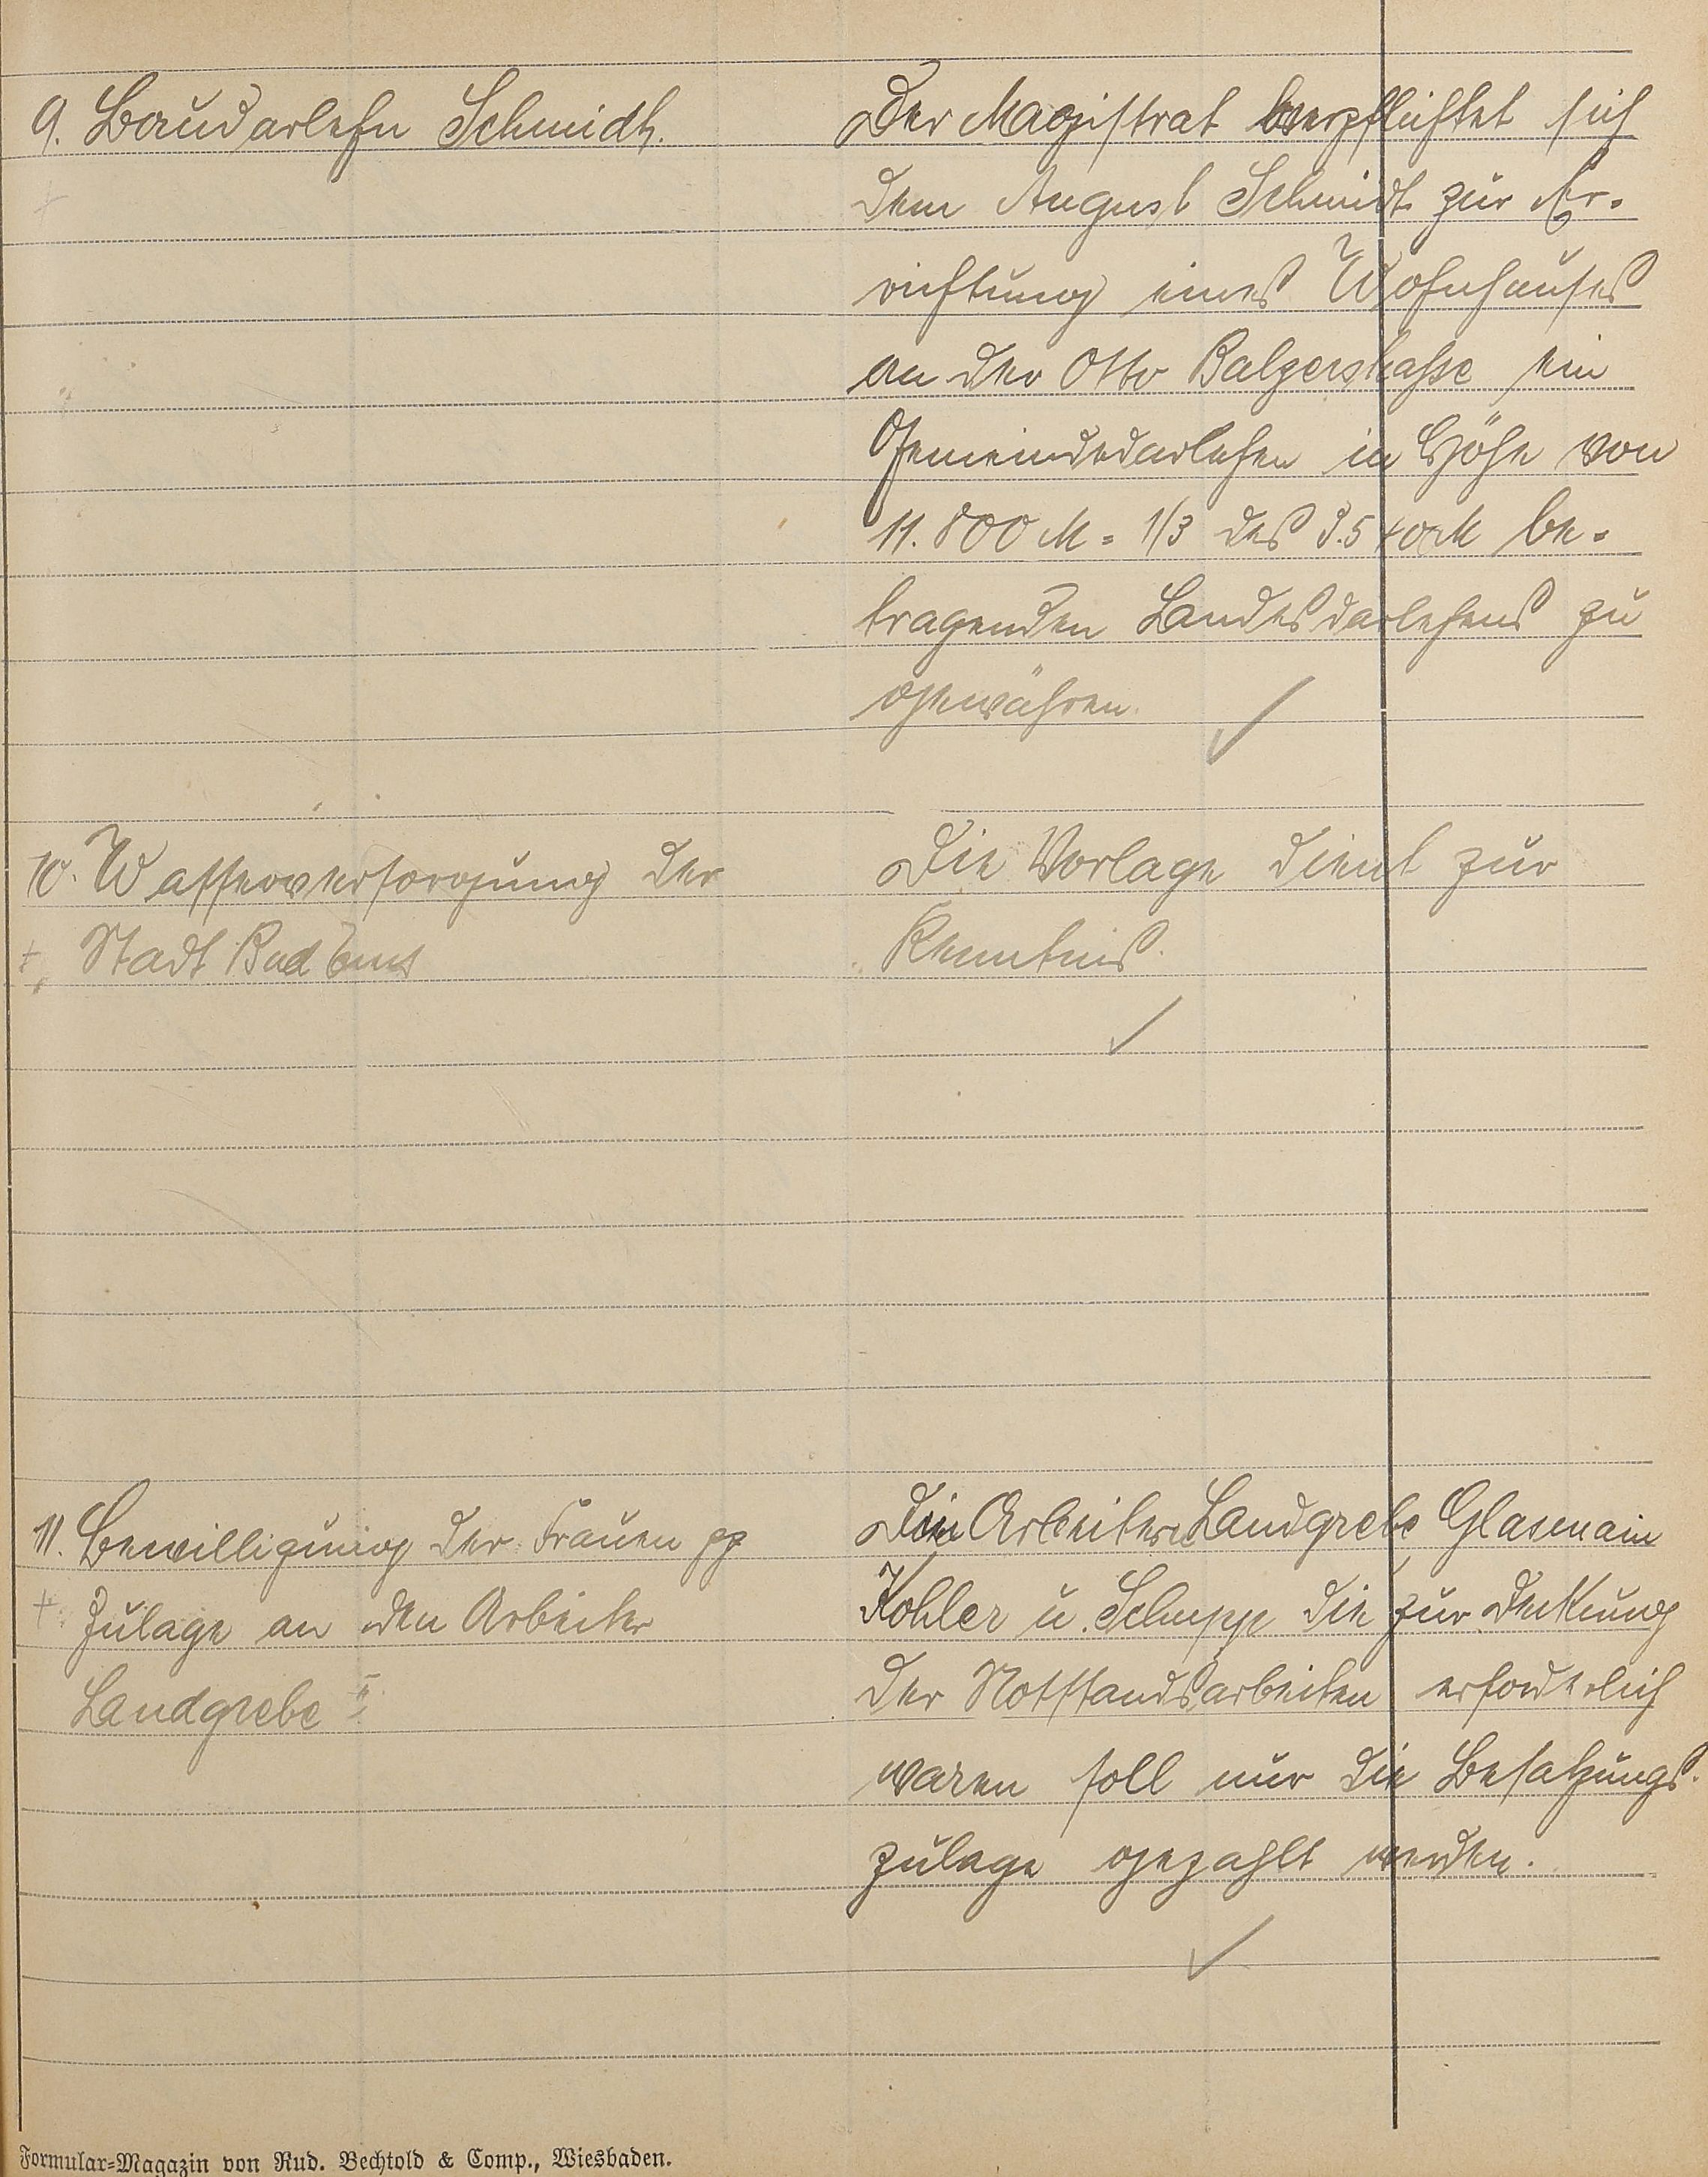 9. Baudarlehn Schmidt.
Der Magistrat verpflichtet sich
dem August Schmidt zur Er-
richtung eines Wohnhauses
an der Otto Balzerstraße ein
Gemeindedarlehen in Höhe von
11.800 M = 1/3 des 3.5400 M be-
tragenden Landesdarlehens zu
gewähren.
10. Wasserversorgung der
Stadt Bad Ems
Die Vorlage dient zur
Kenntnis.
11. Bewilligung der Frauen pp
Zulage an den Arbeiter
Landgrebe II
Die Arbeiter Landgrebe Glasmain
Kohler u. Schupp die zur Deckung
der Notstandsarbeiten erforderlich
waren soll nur die Besatzungs-
zulage gezahlt werden.
Formular-Magazin von Rud. Bechtold & Comp., Wiesbaden.